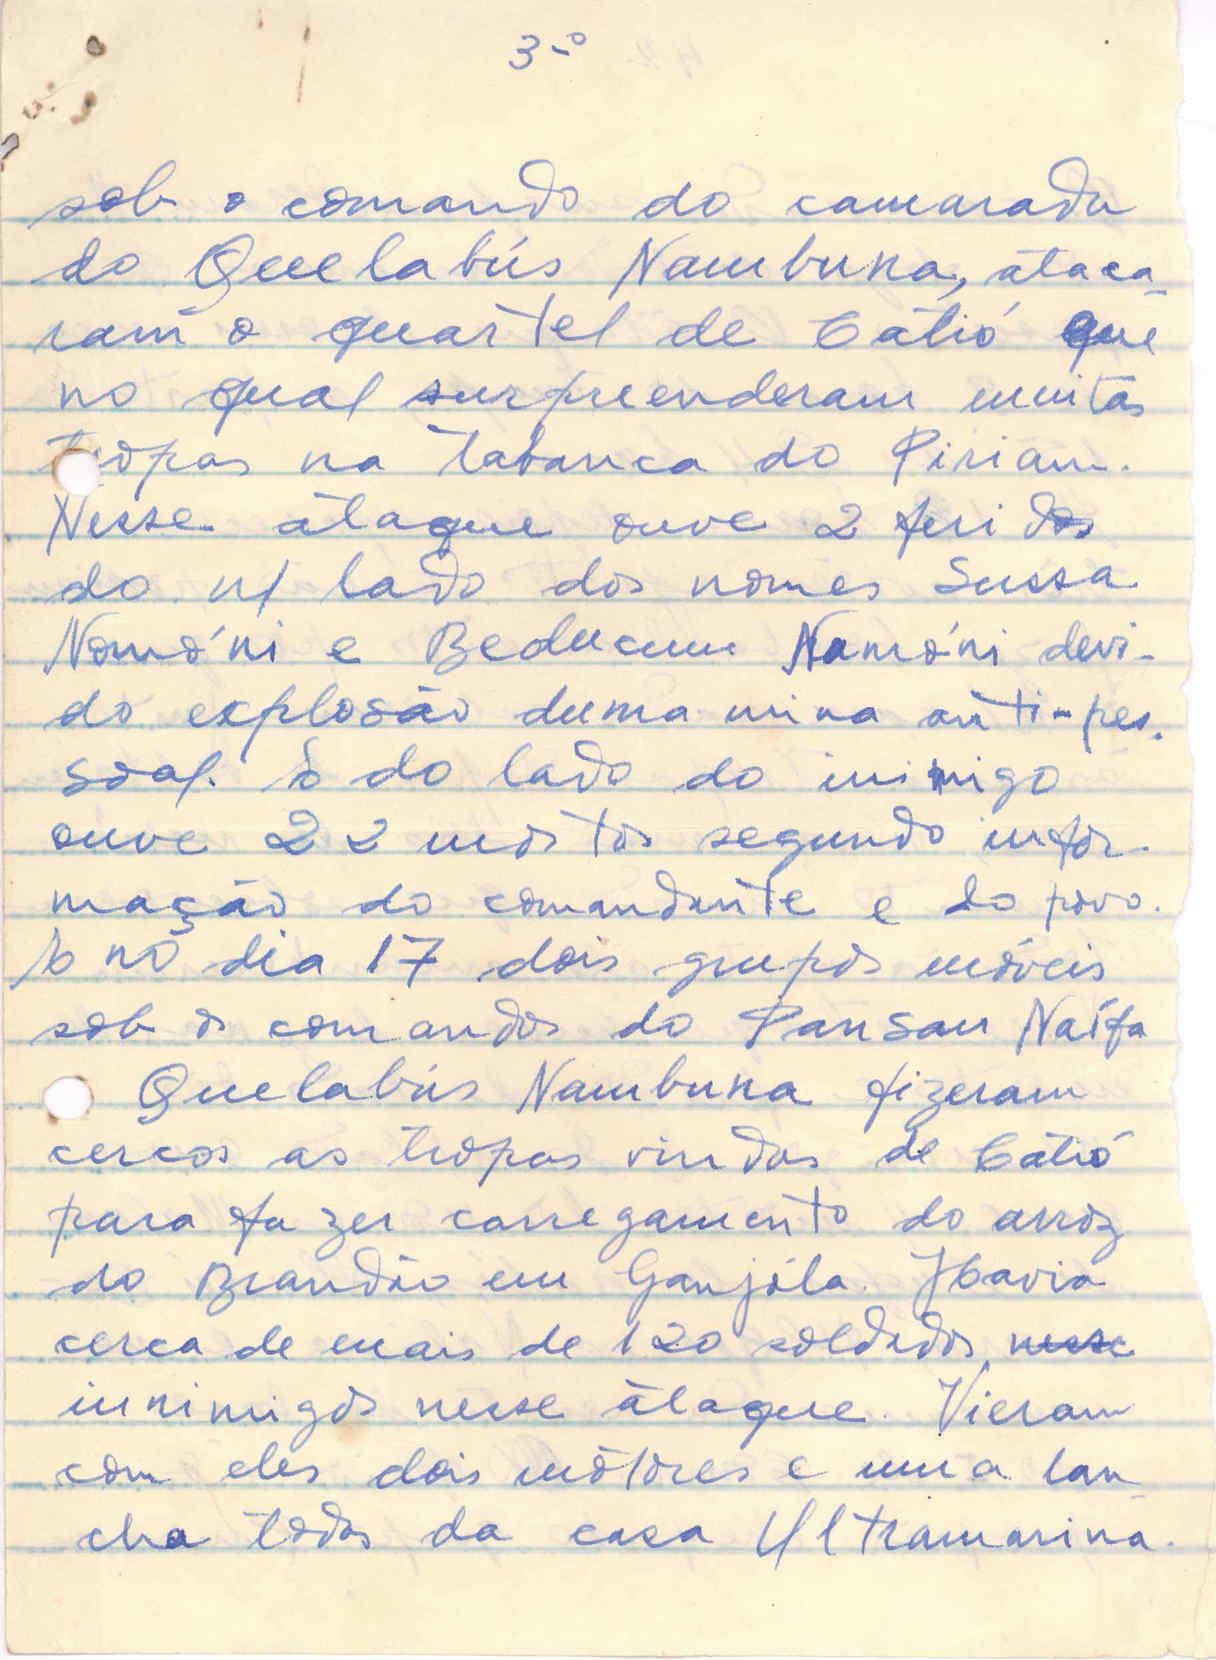 3-º
sob o comando do camarada
do Quelabús Nambuna, ataca-
ram o quartel de Catió que
no qual surpreenderam muitas
tropas na tabanca do Piriam.
Nesse ataque ouve 2 feridos
do n/ lado dos nomes Sussa
Nomóni e Beducum Namóni devi-
do explosão duma mina anti-pes-
soal. E do lado do inimigo
ouve 22 mortos segundo infor-
mação do comandante e do povo.
E no dia 17 dois grupos móveis
sob os comandos do Pansau Naífa
Quelabús Nambuna fizeram
cercos as tropas vindas de Catió
para fazer carregamento do arroz
do Brandão em Ganjóla. Havia
cerca de mais de 120 soldados nesse
innimigos nesse ataque. Vieram
com eles dois mòtores e uma lan-
cha todos da casa Ultramarina.